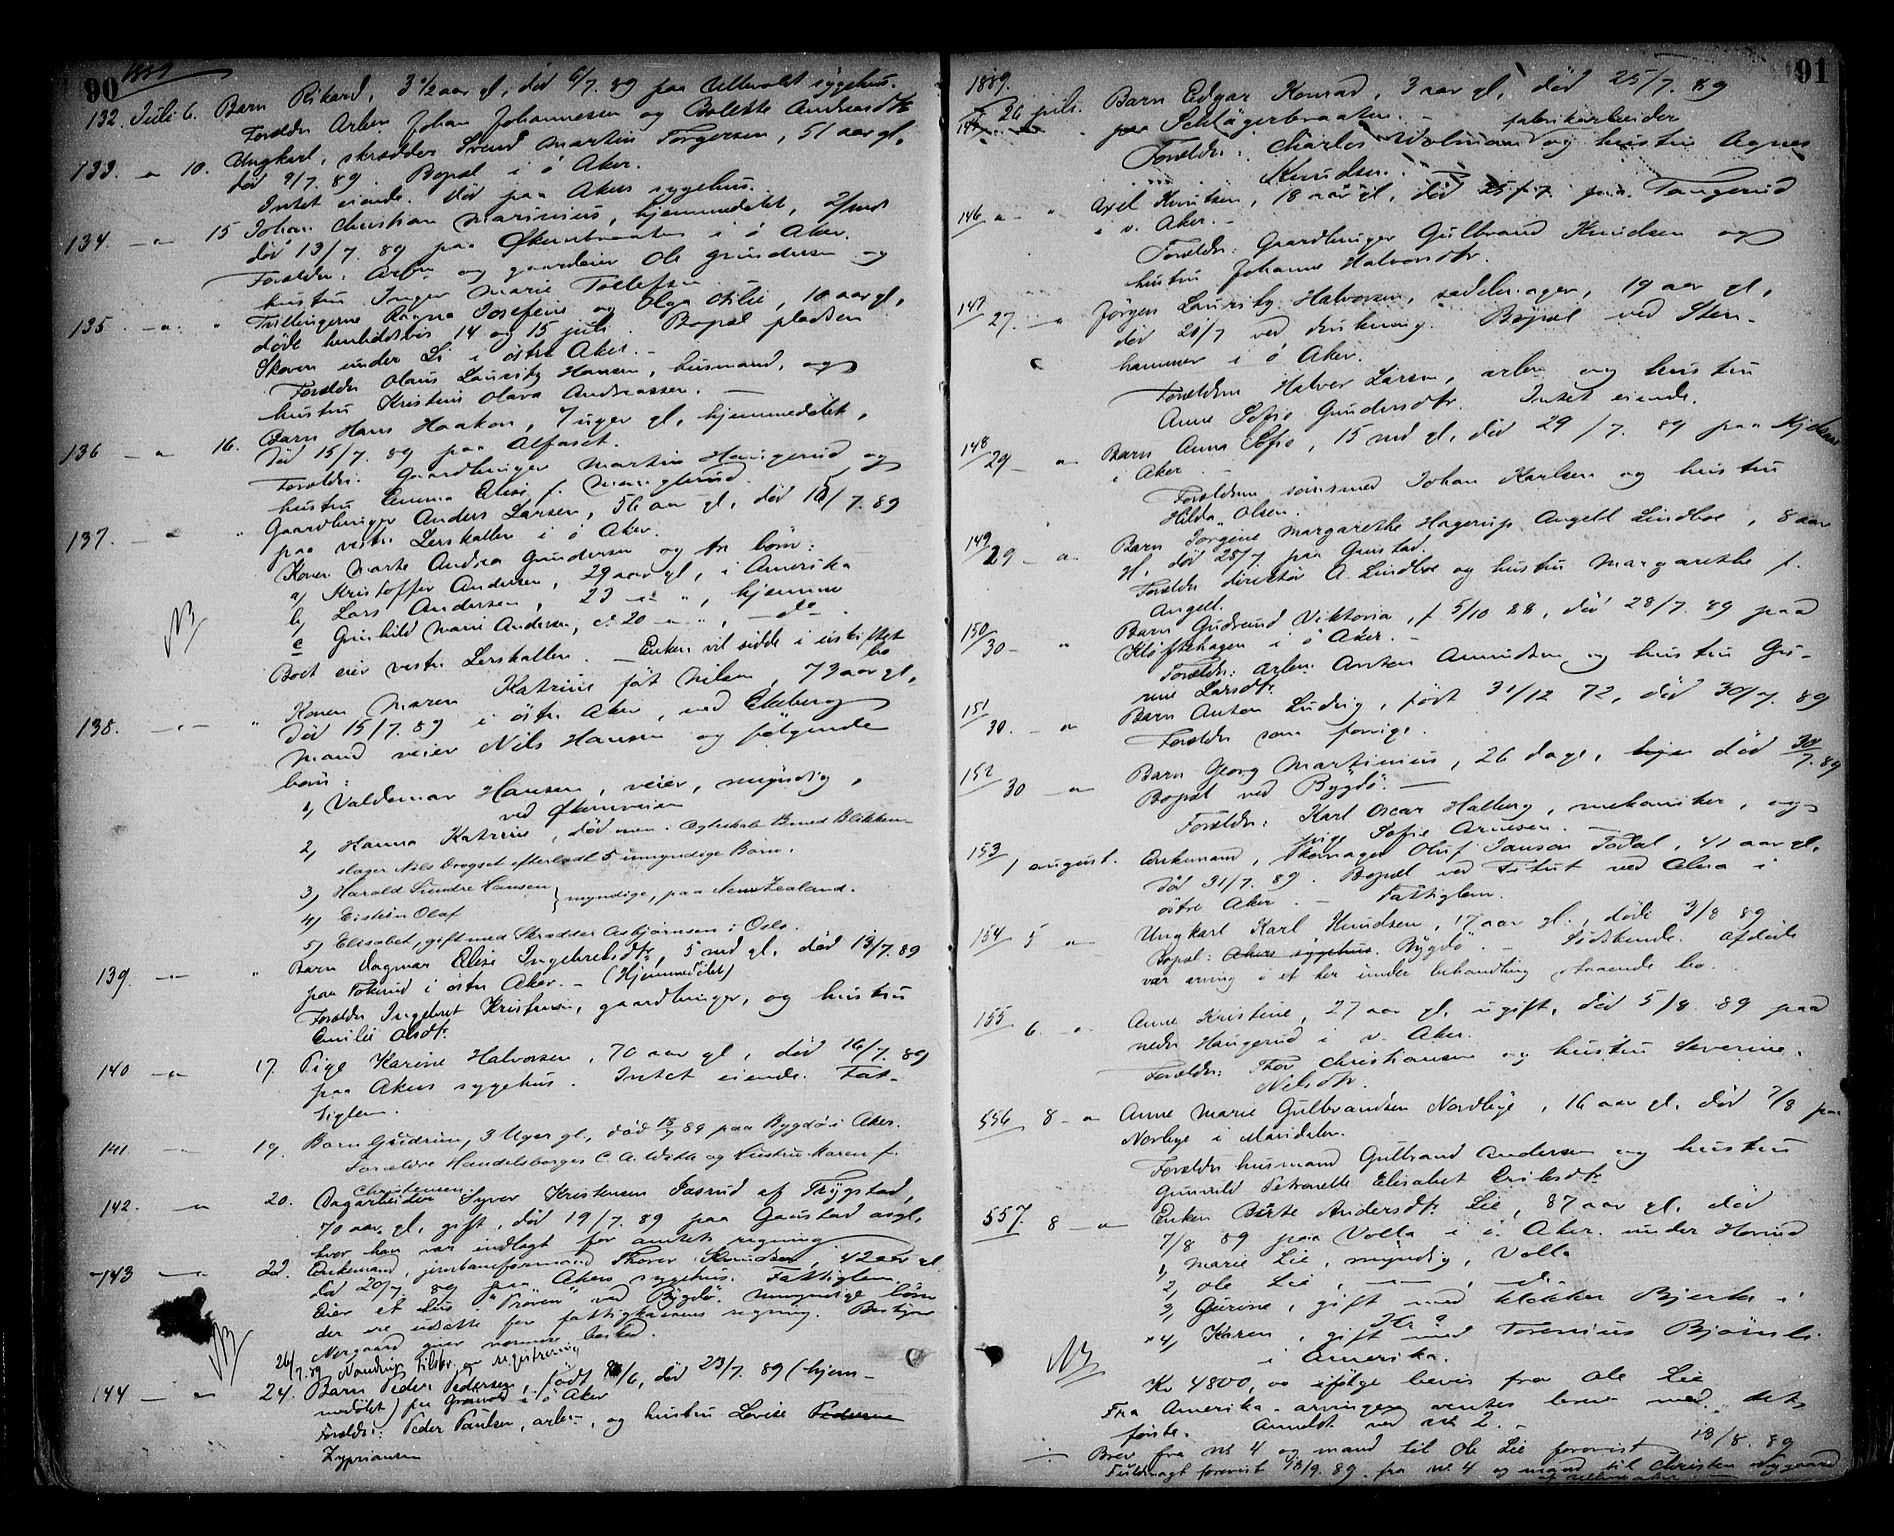 90 1889
132. Juli 6. Barn Rikard, 3 1/2 aar gl, død 6/7. 89 paa Ullevold sygehus.
Forældr Arbm Johan Johannessen og Bolette Andreasdtr
133. - " - 10. Ungkarl, skrædder Svend Martin Torgersen, 51 aar gl,
død 9/7. 89. Bopæl i ö Aker.
Intet eiende. Død paa Akers sygehus.
134. - " - 15 Johan Christian Marinius, hjemmedøbt, 2/mdr
død 13/7. 89 paa Økernbraaten i ö Aker.
Forældr: Arbm og gaardeier Ole Gundersen og
hustru Inger Marie Tollefsen
135. - " - " Tvillingerne Ragna Josefine og Olga Otilie, 10 aar gl,
døde henholdsvis 14 og 15 juli. Bopæl pladsen
Skoven under Li i östre Aker. -
Forældr Olaus Lauritz Hansen, husmand, og
hustru Kristine Olava Andreassen. -
136 - " - 16. Barn Hans Haakon, 7 uger gl, hjemmedøbt,
død 15/7. 89 paa Alfaset.
Forældr. Gaardbruger Martin Haugerud og
hustru Emma Elise f. Manglerud.
137. - " - " Gaardbruger Anders Larsen, 56 aar gl, død 15/7. 89
paa vestre Lerskallen i ö Aker.
Konen Marte Andrea Gundersen og tre börn:
a) Kristoffer Andersen, 29 aar gl, i Amerika
b) Lars Andersen, 23 - " - ", hjemme
c Gunhild Marie Andersen, c. 20 - " - ", - do - .
NB
Boet eier vestre Lerskallen. - Enken vil sidde i uskiftet
bo
138. - " - " Konen Maren Katrine föt Nilsen, 73 aar gl,
död 15/7. 89 i östre Aker, ved Ekeberg
Mand veier Nils Hansen og følgende
børn:
1, Valdemar Hansen, veier, myndig,
ved Økernveien
2, Hanna Katrine, død men i Ægteskab B med Blikken-
slager Nils Drogset efterladt 5 umyndige Børn.
3, Harald Sindre Hansen } myndige, paa New Zealand.
4, Eistein Olaf
5, Elisabet, gift med Skrædder Asbjörnsen i Oslo.
139. - " - " Barn Dagmar Elise Ingebretsdtr, 5 md gl, död 13/7. 89
paa Tokerud i östre Aker. - (Hjemmedöbt)
Forældr Ingebret Kristensen, gaardbruger, og hustru
Emilie Olsdtr.
140 - " - 17 Pige Karine Halvorsen, 70 aar gl, död 16/7. 89
paa Akers sygehus. Intet eiende. Fat-
tiglem.
141 - " - 19. Barn Gudrun, 3 Uger gl., död 18/7 89 paa Bygdø i Aker.
Forældre Handelsborger C. A. Wath og Hustru Maren f.
Christensen.
142. - " - 20. Dagarbeider Syver Kristensen Fosrud af Trygstad,
70 aar gl, gift, död 19/7. 89 paa Gaustad asyl,
hvor han var indlagt for amtets regning
143 - " - 22. Enkemand, jernbaneformand Thorer Knudsen, 42 aar gl
död 20/7. 89 paa Akers sygehus. Fattiglem.
Eier et hus i "Pröven" ved Bygdö. Umyndige börn
der ere udsatte for fattigkassens regning. Bestyrer
Norgaard giver nærmere besked.
NB
26/7. 89 registrering
144 - " - 24. Barn Peder Pedersen, født 21/6, död 23/7. 89 (hjem-
medöbt) paa Granvold i ö Aker
Forældr: Peder Paulsen, arbm, og hustru Lovise Pedersen
Zypriansen
91
1889.
145 26 juli. Barn Edgar Konrad, 3 aar gl, død 25/7. 89
paa Schlägerbraaten. - fabrikarbeider
Forældr: Charles Wolman og hustru Agnes
Knudsen. -
146 " - " Axel Knutsen, 18 aar gl, död 25/7. paa Tangerud
i v. Aker. -
Forældr: Gaardbruger Gulbrand Knudsen og
hustru Johanne Halvorsdtr.
147 27. - " Jørgen Lauritz Halvorsen, sadelmager, 19 aar gl,
död 21/7 ved drukning. Bopæl ved Sten-
hammer i ö Aker.
Forældrene Halvor Larsen, arbm og hustru
Anne Sofie Gundersdtr. Intet eiende.
148 29 - " - Barn Anna Sofie, 15 md gl, död 29/7. 89 paa
i Aker -
Forældrene sömsmed Johan Karlsen og hustru
Hilda Olsen.
149 29 - " - Barn Jorgine Margarethe Hagerup Angell Lindboe, 8 aar
gl, död 28/7 paa Gaustad.
Forældr direktör A. Lindboe og hustru Margarethe f.
Angell.
150 30 - " Barn Gudrund Viktoria, f 5/10 88, död 28/7. 89 paa
Kløftehagen i ö Aker. -
Forældr: Arbm. Arnten Amundsen og hustru Gu-
rine Larsdtr.
151 30. - " Barn Anton Ludvig, født 31/12 72, död 30/7. 89
Forældr som forrige.
152 30 - " - Barn Georg Martinius, 26 dage, hje död 30/7. 89
Bopæl ved Bygdö. -
Forældr: Karl Oscar Halberg, mekaniker, og
pige Sofie Arnesen.
153 1 august. Enkemand, skomager Oluf Janson Todal, 41 aar gl.
död 31/7. 89. Bopæl ved Titut ved Alna i
östre Aker. - Fattiglem.
154 5 - " - Ungkarl Karl Knudsen, 17 aar gl., döde 3/8 89
Bopæl: Akers sygehus. Bygdö. - Södskende. Afdöde
var arving i et her under behandling staaende bo.
155 6. - " Anne Kristine, 27 aar gl, ugift, död 5/8. 89 paa
nedre Haugerud i v. Aker.
Forældr: Thor Christiansen og hustru Severine
Nilsdtr.
556 8 - " Anne Marie Gulbrandsen Nordbye, 16 aar gl, död 7/8 paa
Norbye i Maridalen.
Forældr husmand Gulbrand Andersen og hustru
Gunnild Petronelle Elisabet Eriksdtr
557. 8 - " - Enken Birte Andersdtr. Lie, 87 aar gl, død
7/8 89 paa Volla i ö. Aker. under Hovind
1, Marie Lie, myndig, Volla
2, Ole Lie, - " - , - " -
3, Gurine, gift med klokker Bjerke i
Str ?
× 4, Karen, gift med Torenius Björnli
i Amerika.
NB Kr 4800,00 ifölge bevis fra Ole Lie
Fra Amerika-arvingen ventes brev med det
förste. Anmeldt ved No 2. -
Brev fra No 4 og mand til Ole Lie forevist 13/8. 89
Fuldmagt forevist 13/9. 89 fra No. 4 og mand til Christen Nygaard